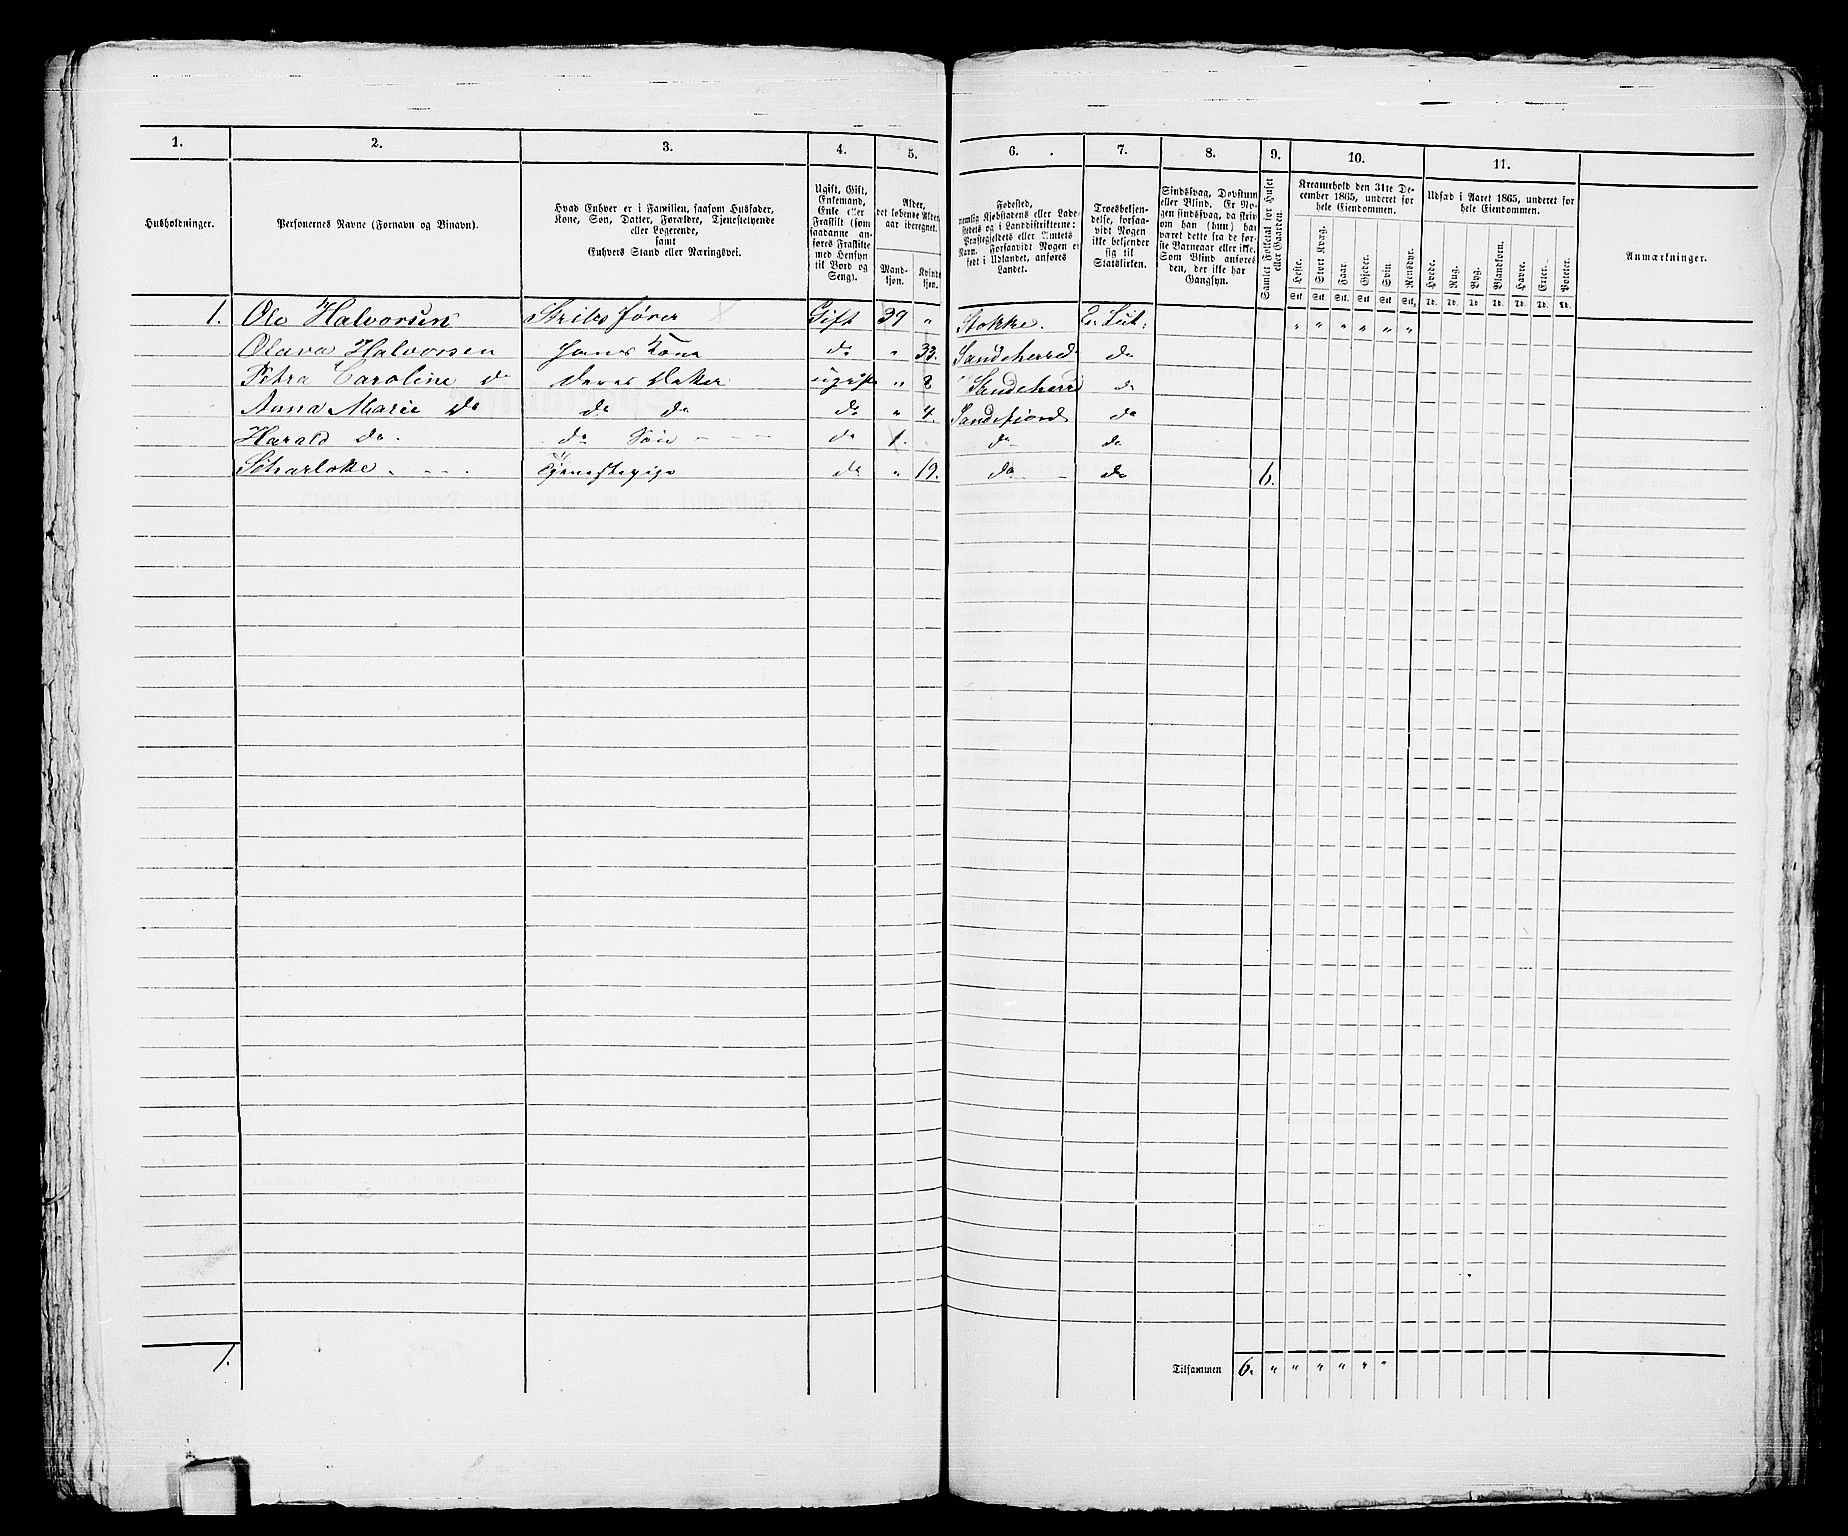 1. 2. 3. 4. 5. 6. 7. 8. 9. 10. 11.
Husholdninger.
Personernes Navne (Fornavn og Binavn).
Hvad Enhver er i Familien, saasom Husfader,
Kone, Søn, Datter, Forældre, Tjenestetyende
eller Logerende,
samt
Enhvers Stand eller Næringsvei.
Ugift, Gift,
Enkemand,
Enke eller
Fraskilt (som
saadanne an-
føres Fraskilte
med Hensyn
til Bord og
Seng).
Alder,
det løbende Alders-
aar iberegnet.
Mand-
kjøn.
Kvinde-
kjøn.
Fødested,
nemlig Kjøbstadens eller Lade-
stedets og i Landdistrikterne:
Præstegjeldets eller Amtets
Navn. Forsaavidt Nogen er
født i Udlandet, anføres
Landet.
Troesbekjen-
delse, forsaa-
vidt Nogen
ikke bekjender
sig til
Statskirken.
Sindssvag, Døvstum
eller Blind. Er No-
gen sindssvag, da skriv
om han (hun) har
været dette fra de før-
ste Barneaar eller ikke.
Som Blind anføres
den, der ikke har
Gangsyn.
Samlet Folketal for Huset
eller Gaarden.
Kreaturhold den 31te De-
cember 1865, underet for
hele Eiendommen.
Heste. Stort Kvæg. Faar. Gjeder. Svin. Rensdyr.
Stk. Stk. Stk. Stk. Stk. Stk.
Udsæd i Aaret 1865, underet for
hele Eiendommen.
Hvede. Rug. Byg. Blandkorn. Havre. Erter. Poteter.
Td. Td. Td. Td. Td. Td. Td.
Anmærkninger.
1. Ole Halvorsen Skibsfører Gift 39 " Stokke. Ev. Lut: " " " " " "
Olava Halvorsen Hans Kone do " 33. Sandeherred do
Petra Caroline do deres Datter ugift " 8 Sandeherred do
Anna Marie do do do do " 4. Sandefjord do
Harald do. do Søn do 1. do do
Tjenestepige do " 19. do do 6.
1. Tilsammen 6. " " " " " "